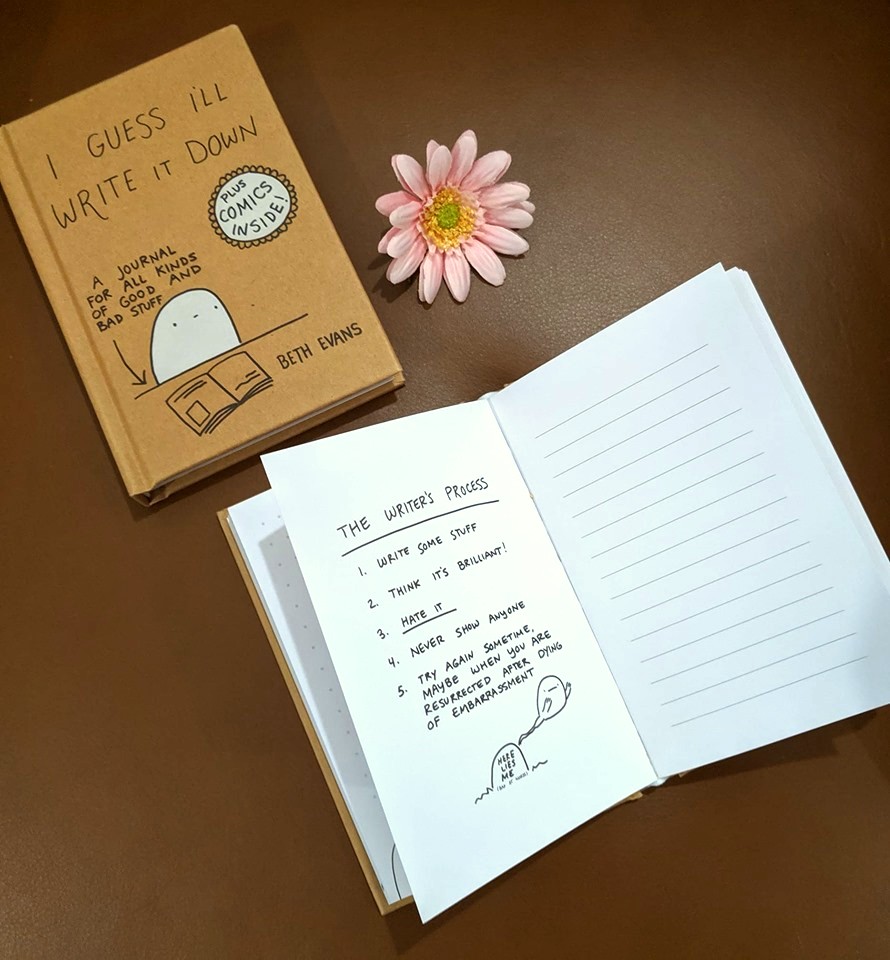 I GUESS iLL
WRITE IT DOWN
PLUS
COMICS
INSIDE!
A JOURNAL
FOR ALL KINDS
OF GOOD AND
BAD STUFF
BETH EVANS
THE WRITER'S PROCESS
1. WRITE SOME STUFF
2. THINK IT'S BRILLIANT!
3. HATE IT
4. NEVER SHOW ANYONE
5. TRY AGAIN SOMETIME,
MAYBE WHEN YOU ARE
RESURRECTED AFTER DYING
OF EMBARRASSMENT
HERE
LIES
ME